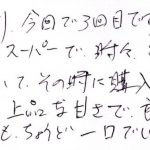 り、今回で3回目です
スーパーで、時々、
いて、その時に購入
上品な甘さで、
も、ちょうど一口でい